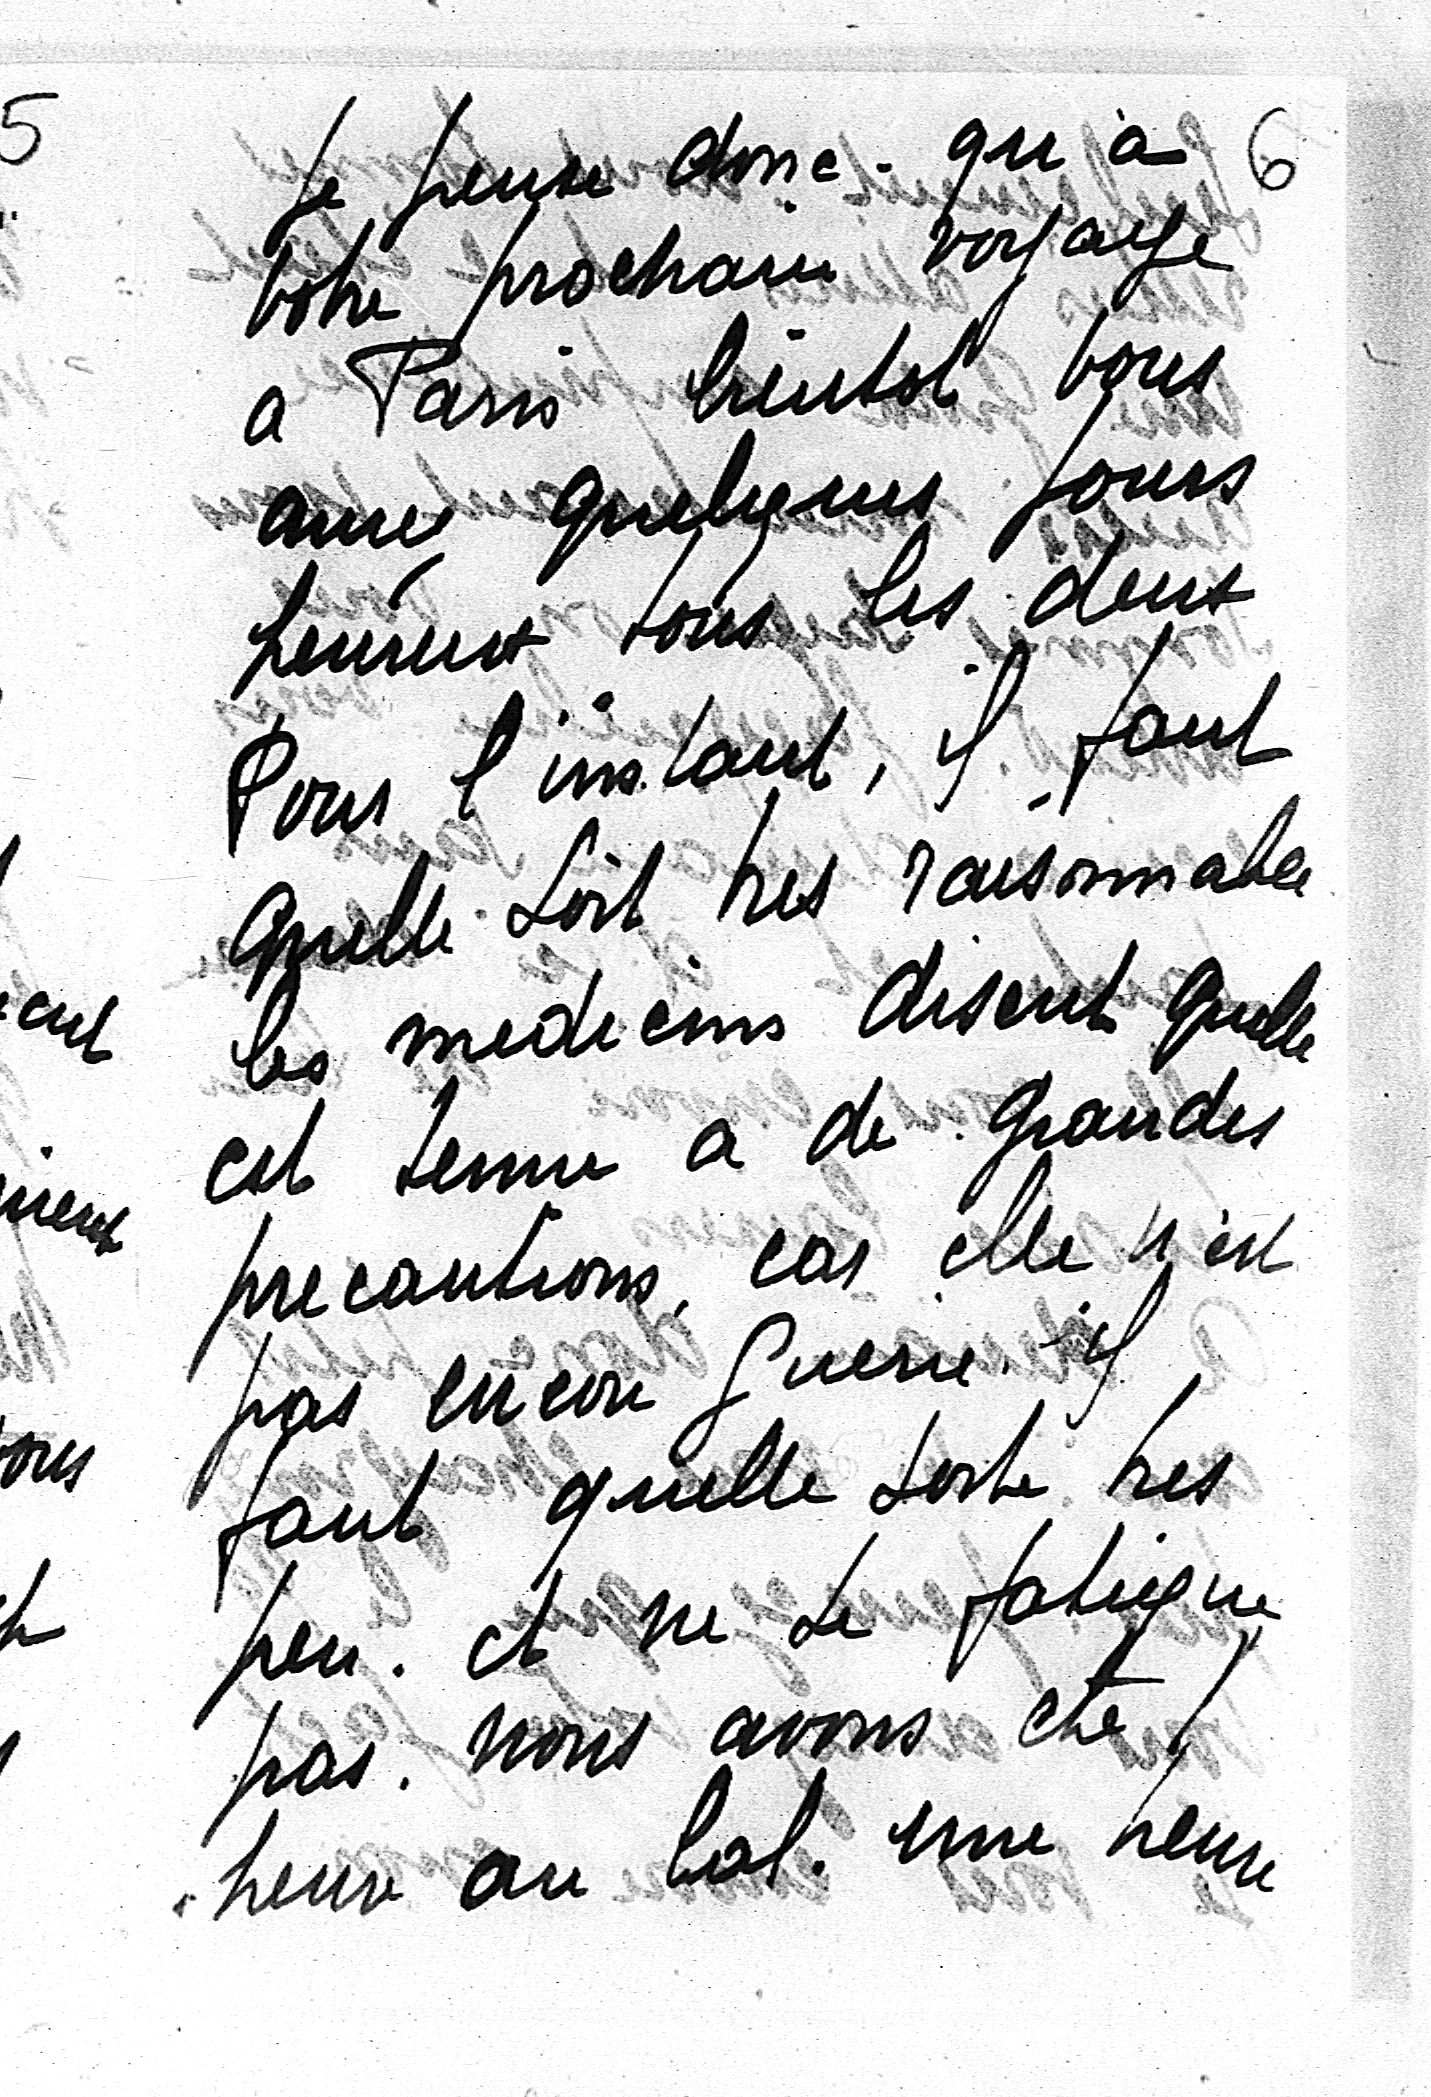 5
6
Je pense donc. qu'a
votre prochain voyage
a Paris bientot vous
aurez quelques jours
heureux tous les deux
Pour l'instant, il faut
quelle soit tres raisonnable
les medecins disent quelle
est tenue a de grandes
precautions, car elle n'est
pas encore guerie. il
faut quelle sorte tres
peu. et ne se fatigue
pas. nous avons été 1
heure au bal. une heure
vous